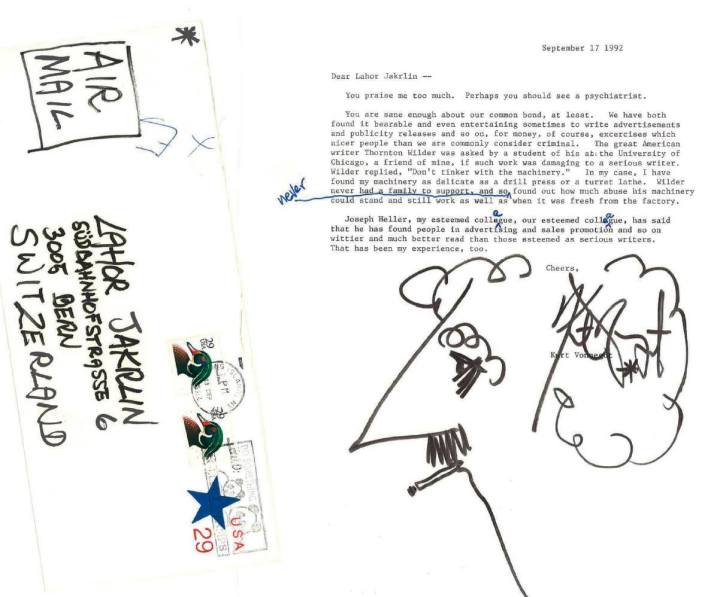 AIR
MAIL
LAHOR JAKRLIN
SÜDBAHNHOFSTRASSE 6
3005 BERN
SWITZERLAND
29
USA
29
September 17 1992
Dear Lahor Jakrlin --
You praise me too much. Perhaps you should see a psychiatrist.
You are sane enough about our common bond, at least. We have both
found it bearable and even entertaining sometimes to write advertisements
and publicity releases and so on, for money, of course, excercises which
nicer people than we are commonly consider criminal. The great American
writer Thornton Wilder was asked by a student of his at the University of
Chicago, a friend of mine, if such work was damaging to a serious writer.
Wilder replied, "Don't tinker with the machinery." In my case, I have
found my machinery as delicate as a drill press or a turret lathe. Wilder
never
never had a family to support, and so found out how much abuse his machinery
could stand and still work as well as when it was fresh from the factory.
a a
Joseph Heller, my esteemed collegue, our esteemed collegue, has said
that he has found people in advertising and sales promotion and so on
wittier and much better read than those esteemed as serious writers.
That has been my experience, too.
Cheers,
Kurt Vonnegut